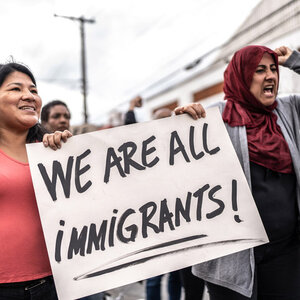 WE ARE ALL
iMMIGRANTS!